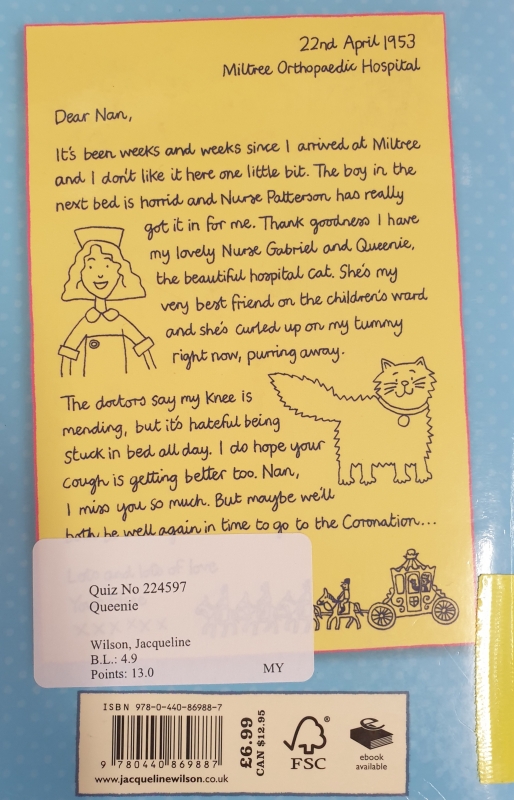 22nd April 1953
Miltree Orthopaedic Hospital
Dear Nan,
It's been weeks and weeks since I arrived at Miltree
and I don't like it here one little bit. The boy in the
next bed is horrid and Nurse Patterson has really
got it in for me. Thank goodness I have
my lovely Nurse Gabriel and Queenie,
the beautiful hospital cat. She's my
very best friend on the children's ward
and she's curled up on my tummy
right now, purring away.
The doctors say my knee is
mending, but it's hateful being
stuck in bed all day. I do hope your
cough is getting better too. Nan,
I miss you so much. But maybe we'll
both be well again in time to go to the Coronation...
Lots and lots of love
Quiz No 224597
Queenie
Wilson, Jacqueline
B.L.: 4.9
Points: 13.0 MY
ISBN 978-0-440-86988-7
9 780440 869887
www.jacquelinewilson.co.uk
£6.99
CAN $12.95
FSC
®
e
ebook
available